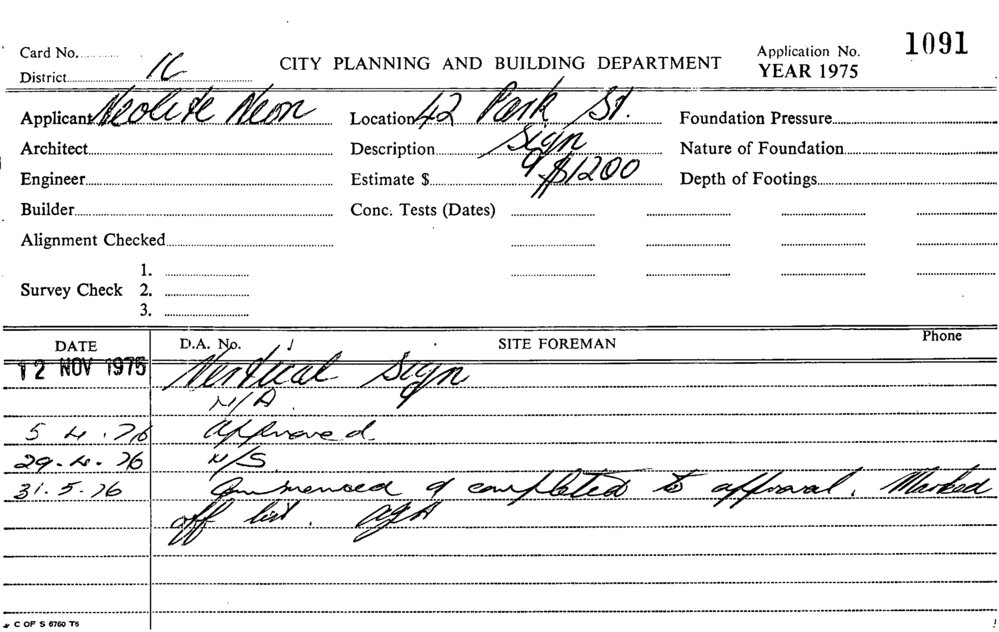 Card No. 1091
District 1C CITY PLANNING AND BUILDING DEPARTMENT Application No.
YEAR 1975
Applicant Neolite Neon Location 42 Park St. Foundation Pressure
Architect Description Sign Nature of Foundation
Engineer Estimate $ $1200 Depth of Footings
Builder Conc. Tests (Dates)
Alignment Checked
1.
Survey Check 2.
3.
DATE D.A. No. SITE FOREMAN Phone
12 NOV 1975 Vertical Sign
N/A.
5.4.76 Approved
29.4.76 N/S
31.5.76 Commenced & completed to approval. Marked
off list.
C OF S 6760 T6